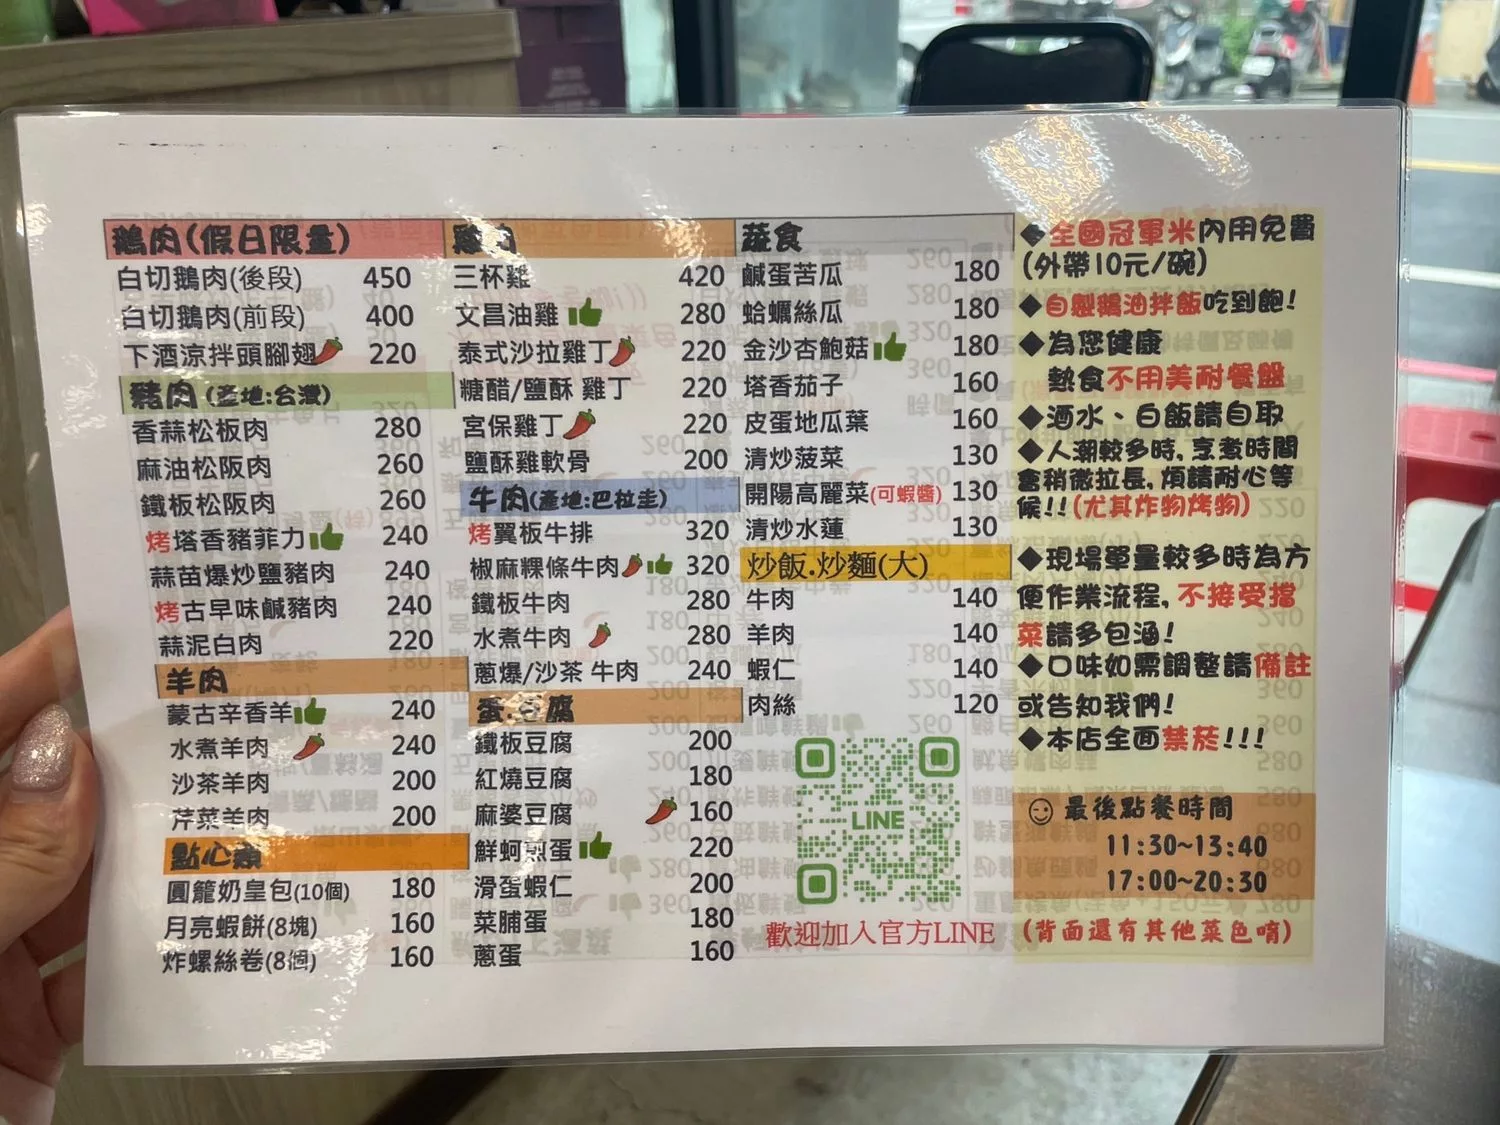 鵝肉(假日限量)
白切鵝肉(後段) 450
白切鵝肉(前段) 400
下酒涼拌頭腳翅 220
豬肉(產地:台灣)
香蒜松板肉 280
麻油松阪肉 260
鐵板松阪肉 260
烤塔香豬菲力 240
蒜苗爆炒鹽豬肉 240
烤古早味鹹豬肉 240
蒜泥白肉 220
羊肉
蒙古辛香羊 240
水煮羊肉 240
沙茶羊肉 200
芹菜羊肉 200
點心類
圓籠奶皇包(10個) 180
月亮蝦餅(8塊) 160
炸螺絲卷(8個) 160
雞肉
三杯雞 420
文昌油雞 280
泰式沙拉雞丁 220
糖醋/鹽酥 雞丁 220
宮保雞丁 220
鹽酥雞軟骨 200
牛肉(產地:巴拉圭)
烤翼板牛排 320
椒麻粿條牛肉 320
鐵板牛肉 280
水煮牛肉 280
蔥爆/沙茶 牛肉 240
蛋.豆腐
鐵板豆腐 200
紅燒豆腐 180
麻婆豆腐 160
鮮蚵煎蛋 220
滑蛋蝦仁 200
菜脯蛋 180
蔥蛋 160
蔬食
鹹蛋苦瓜 180
蛤蠣絲瓜 180
金沙杏鮑菇 180
塔香茄子 160
皮蛋地瓜葉 160
清炒菠菜 130
開陽高麗菜(可蝦醬) 130
清炒水蓮 130
炒飯.炒麵(大)
牛肉 140
羊肉 140
蝦仁 140
肉絲 120
LINE
歡迎加入官方LINE
◆全國冠軍米內用免費
(外帶10元/碗)
◆自製鵝油拌飯吃到飽!
◆為您健康
熱食不用美耐餐盤
◆酒水、白飯請自取
◆人潮較多時,烹煮時間
會稍微拉長,煩請耐心等
候!!(尤其炸物烤物)
◆現場單量較多時為方
便作業流程,不接受擋
菜請多包涵!
◆口味如需調整請備註
或告知我們!
◆本店全面禁菸!!!
最後點餐時間
11:30~13:40
17:00~20:30
(背面還有其他菜色唷)